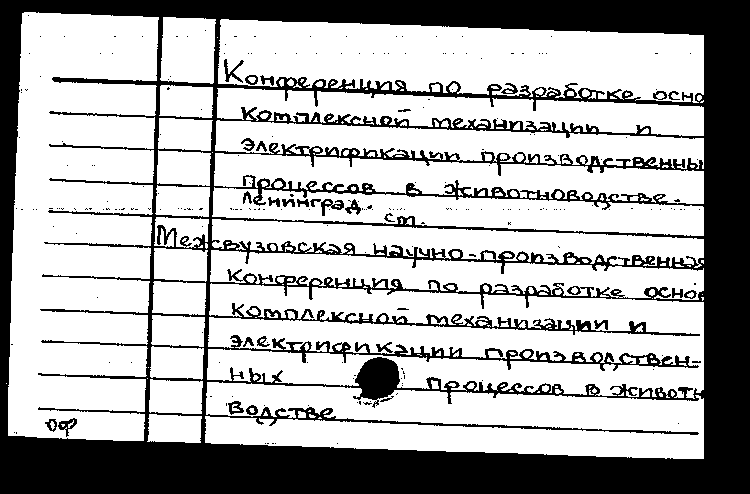 Конференция по разработке осно
комплексной механизации и
электрификации производственны
процессов в животноводстве.
Ленинград.
ст.
Межвузовская научно-производственная
конференция по разработке основ
комплексной механизации и
электрификации производствен-
ных процессов в животн
водстве